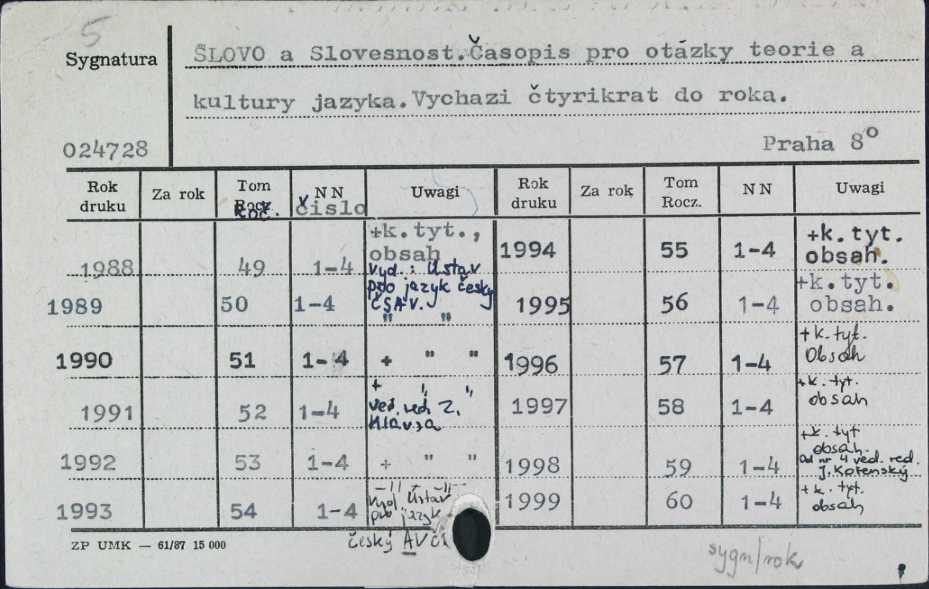 5
Sygnatura
SLOVO a Slovesnost.Časopis pro otázky teorie a
kultury jazyka.Vychazi čtyrikrat do roka.
024728
Praha 8°
Rok druku Za rok Tom Rocz. NN Uwagi Rok druku Za rok Tom Rocz. NN Uwagi
roč. čislo
1988 49 1-4 +k.tyt., obsah
vyd.: Ústav
pro jazyk český
ČSAV.
1989 50 1-4 " "
1990 51 1-4 + " "
1991 52 1-4 + " "
ved. red. Z.
Hlavsa
1992 53 1-4 + " "
1993 54 1-4 -"- -"-
Vyd. Ústav
pro jazyk
český AV ČR
1994 55 1-4 +k.tyt. obsah.
1995 56 1-4 +k.tyt. obsah.
1996 57 1-4 +k.tyt. Obsah
1997 58 1-4 +k.tyt. obsah
1998 59 1-4 +k.tyt obsah.
Od nr 4 ved. red.
J. Kořenský
1999 60 1-4 +k.tyt. obsah
ZP UMK — 61/87 15 000
sygn/rok